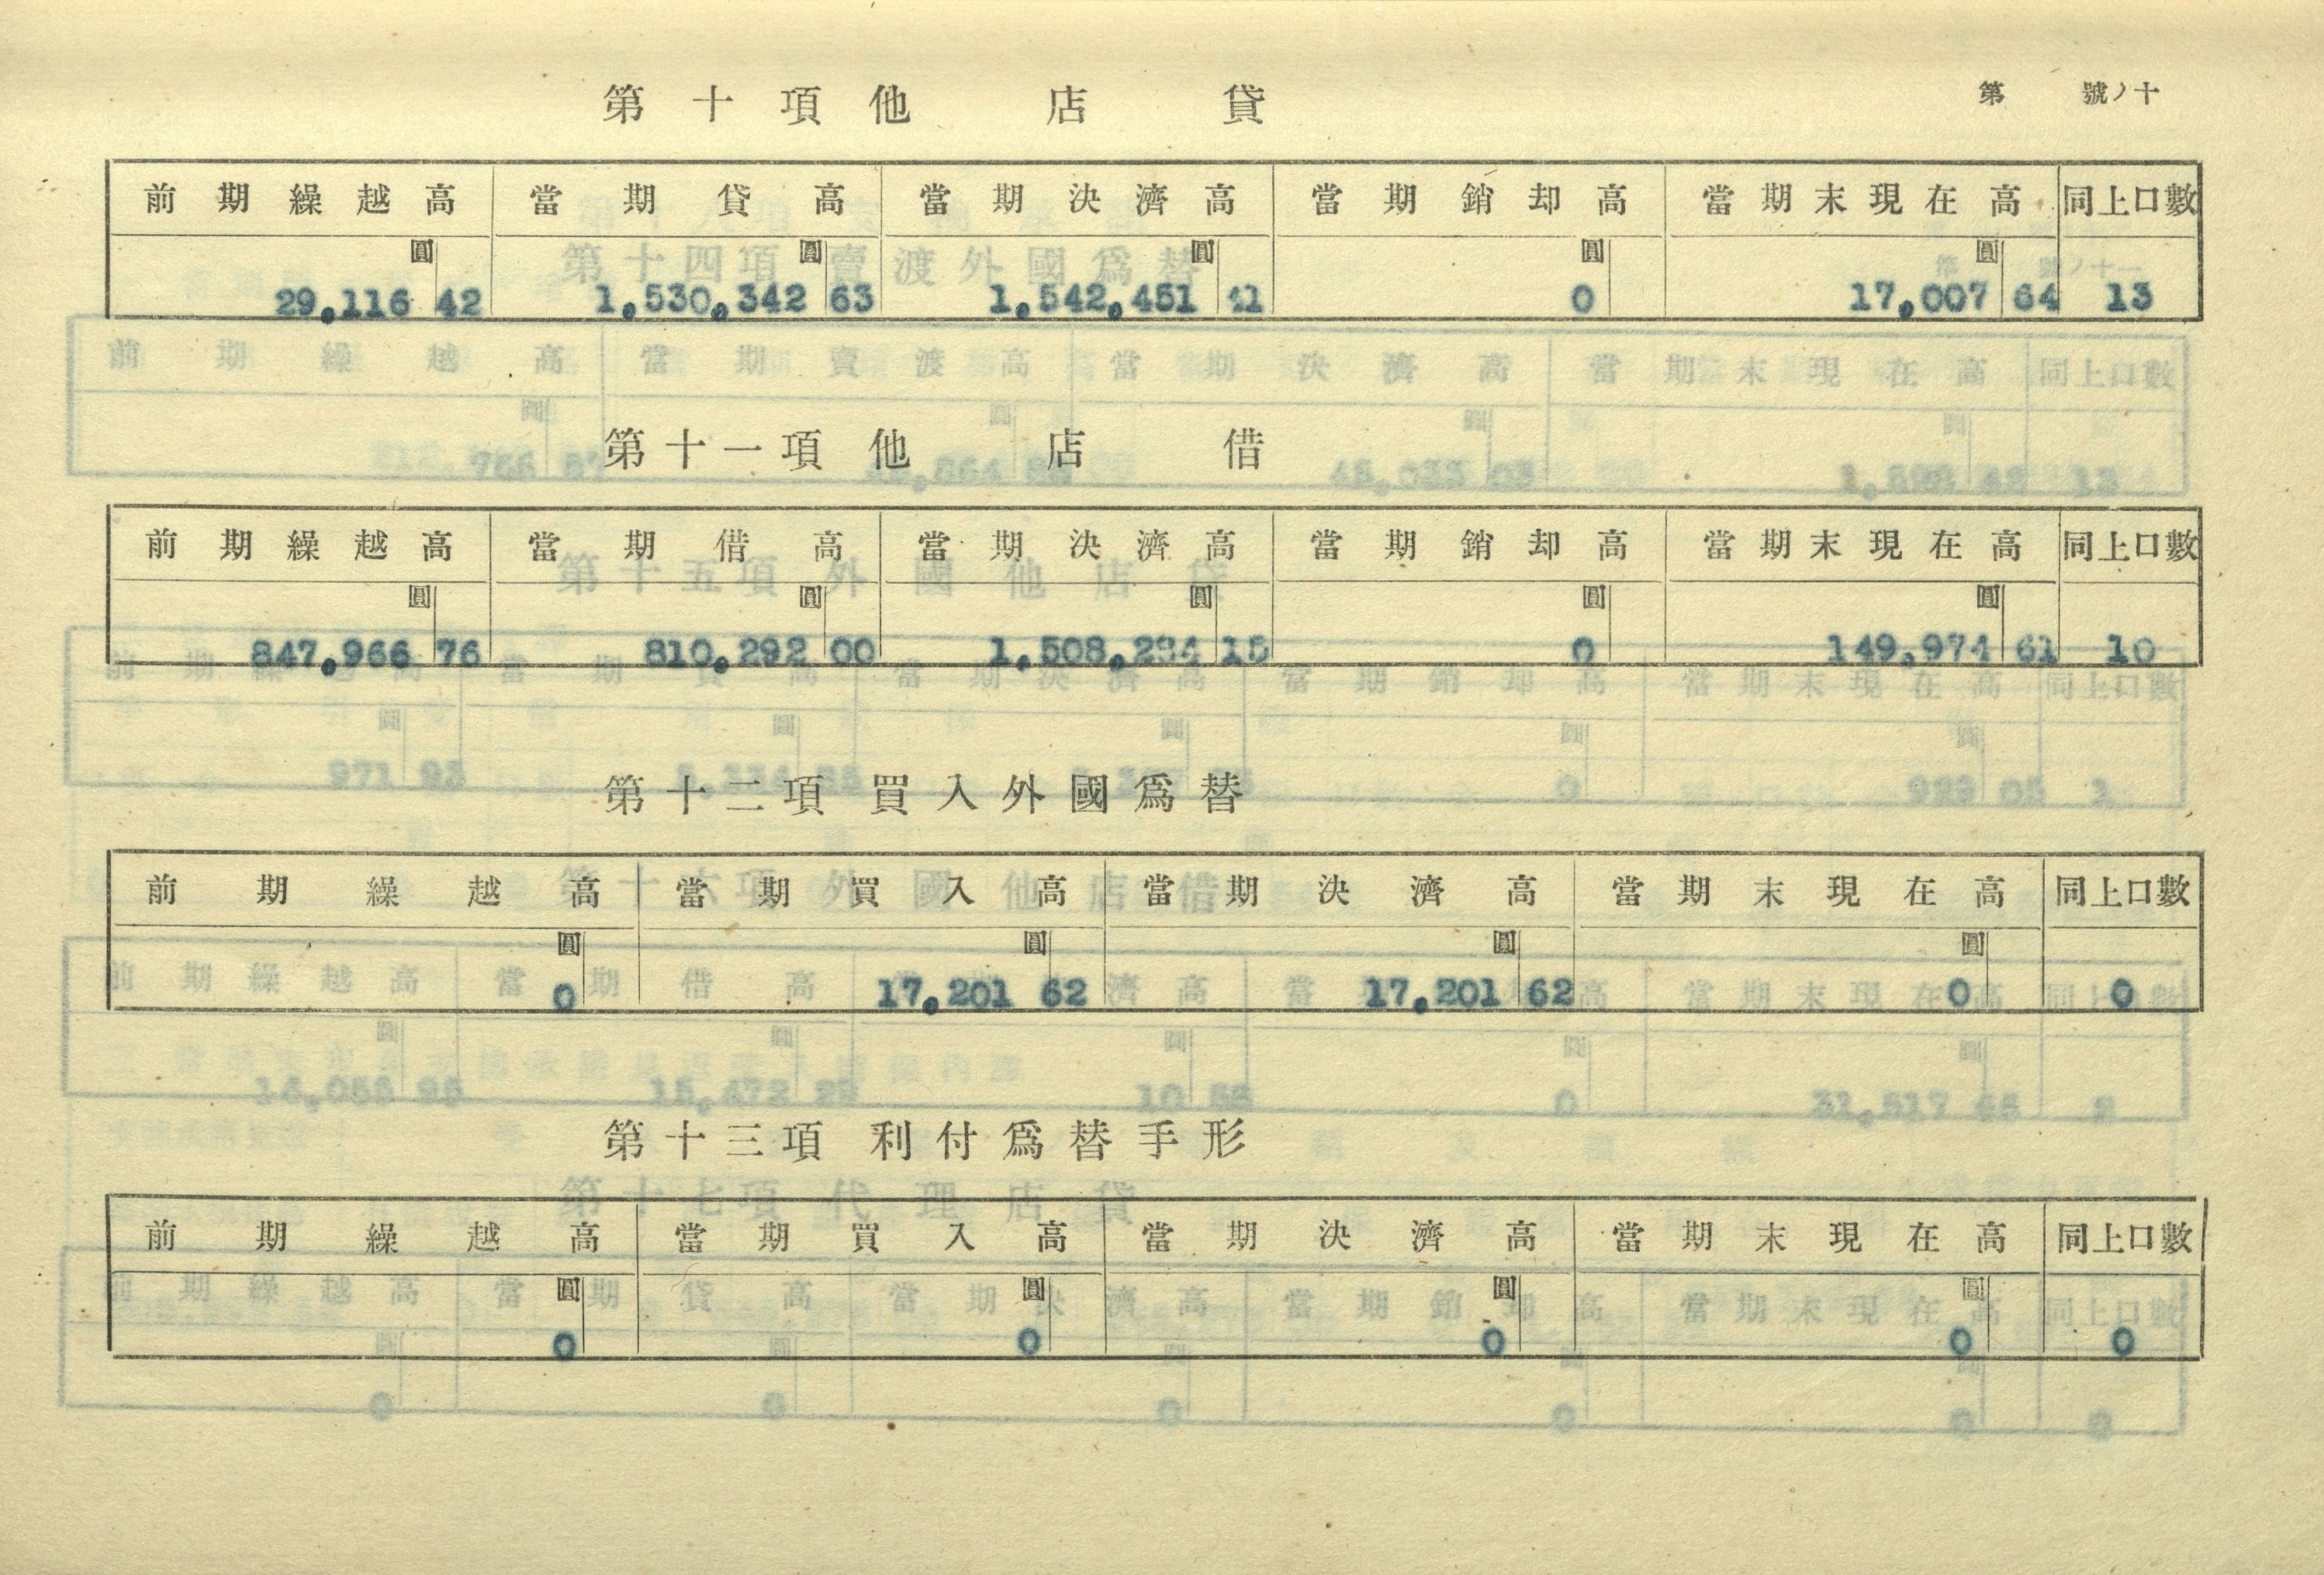 第 號ノ十
第十項 他店貸
前期繰越高 當期貸高 當期決濟高 當期銷却高 當期末現在高 同上口數
圓 圓 圓 圓 圓
29,116 42 1,530,342 63 1,542,451 41 0 17,007 64 13
第十一項 他店借
前期繰越高 當期借高 當期決濟高 當期銷却高 當期末現在高 同上口數
圓 圓 圓 圓 圓
847,966 76 810,292 00 1,508,284 15 0 149,974 61 10
第十二項 買入外國爲替
前期繰越高 當期買入高 當期決濟高 當期末現在高 同上口數
圓 圓 圓 圓
0 17,201 62 17,201 62 0 0
第十三項 利付爲替手形
前期繰越高 當期買入高 當期決濟高 當期末現在高 同上口數
圓 圓 圓 圓
0 0 0 0 0